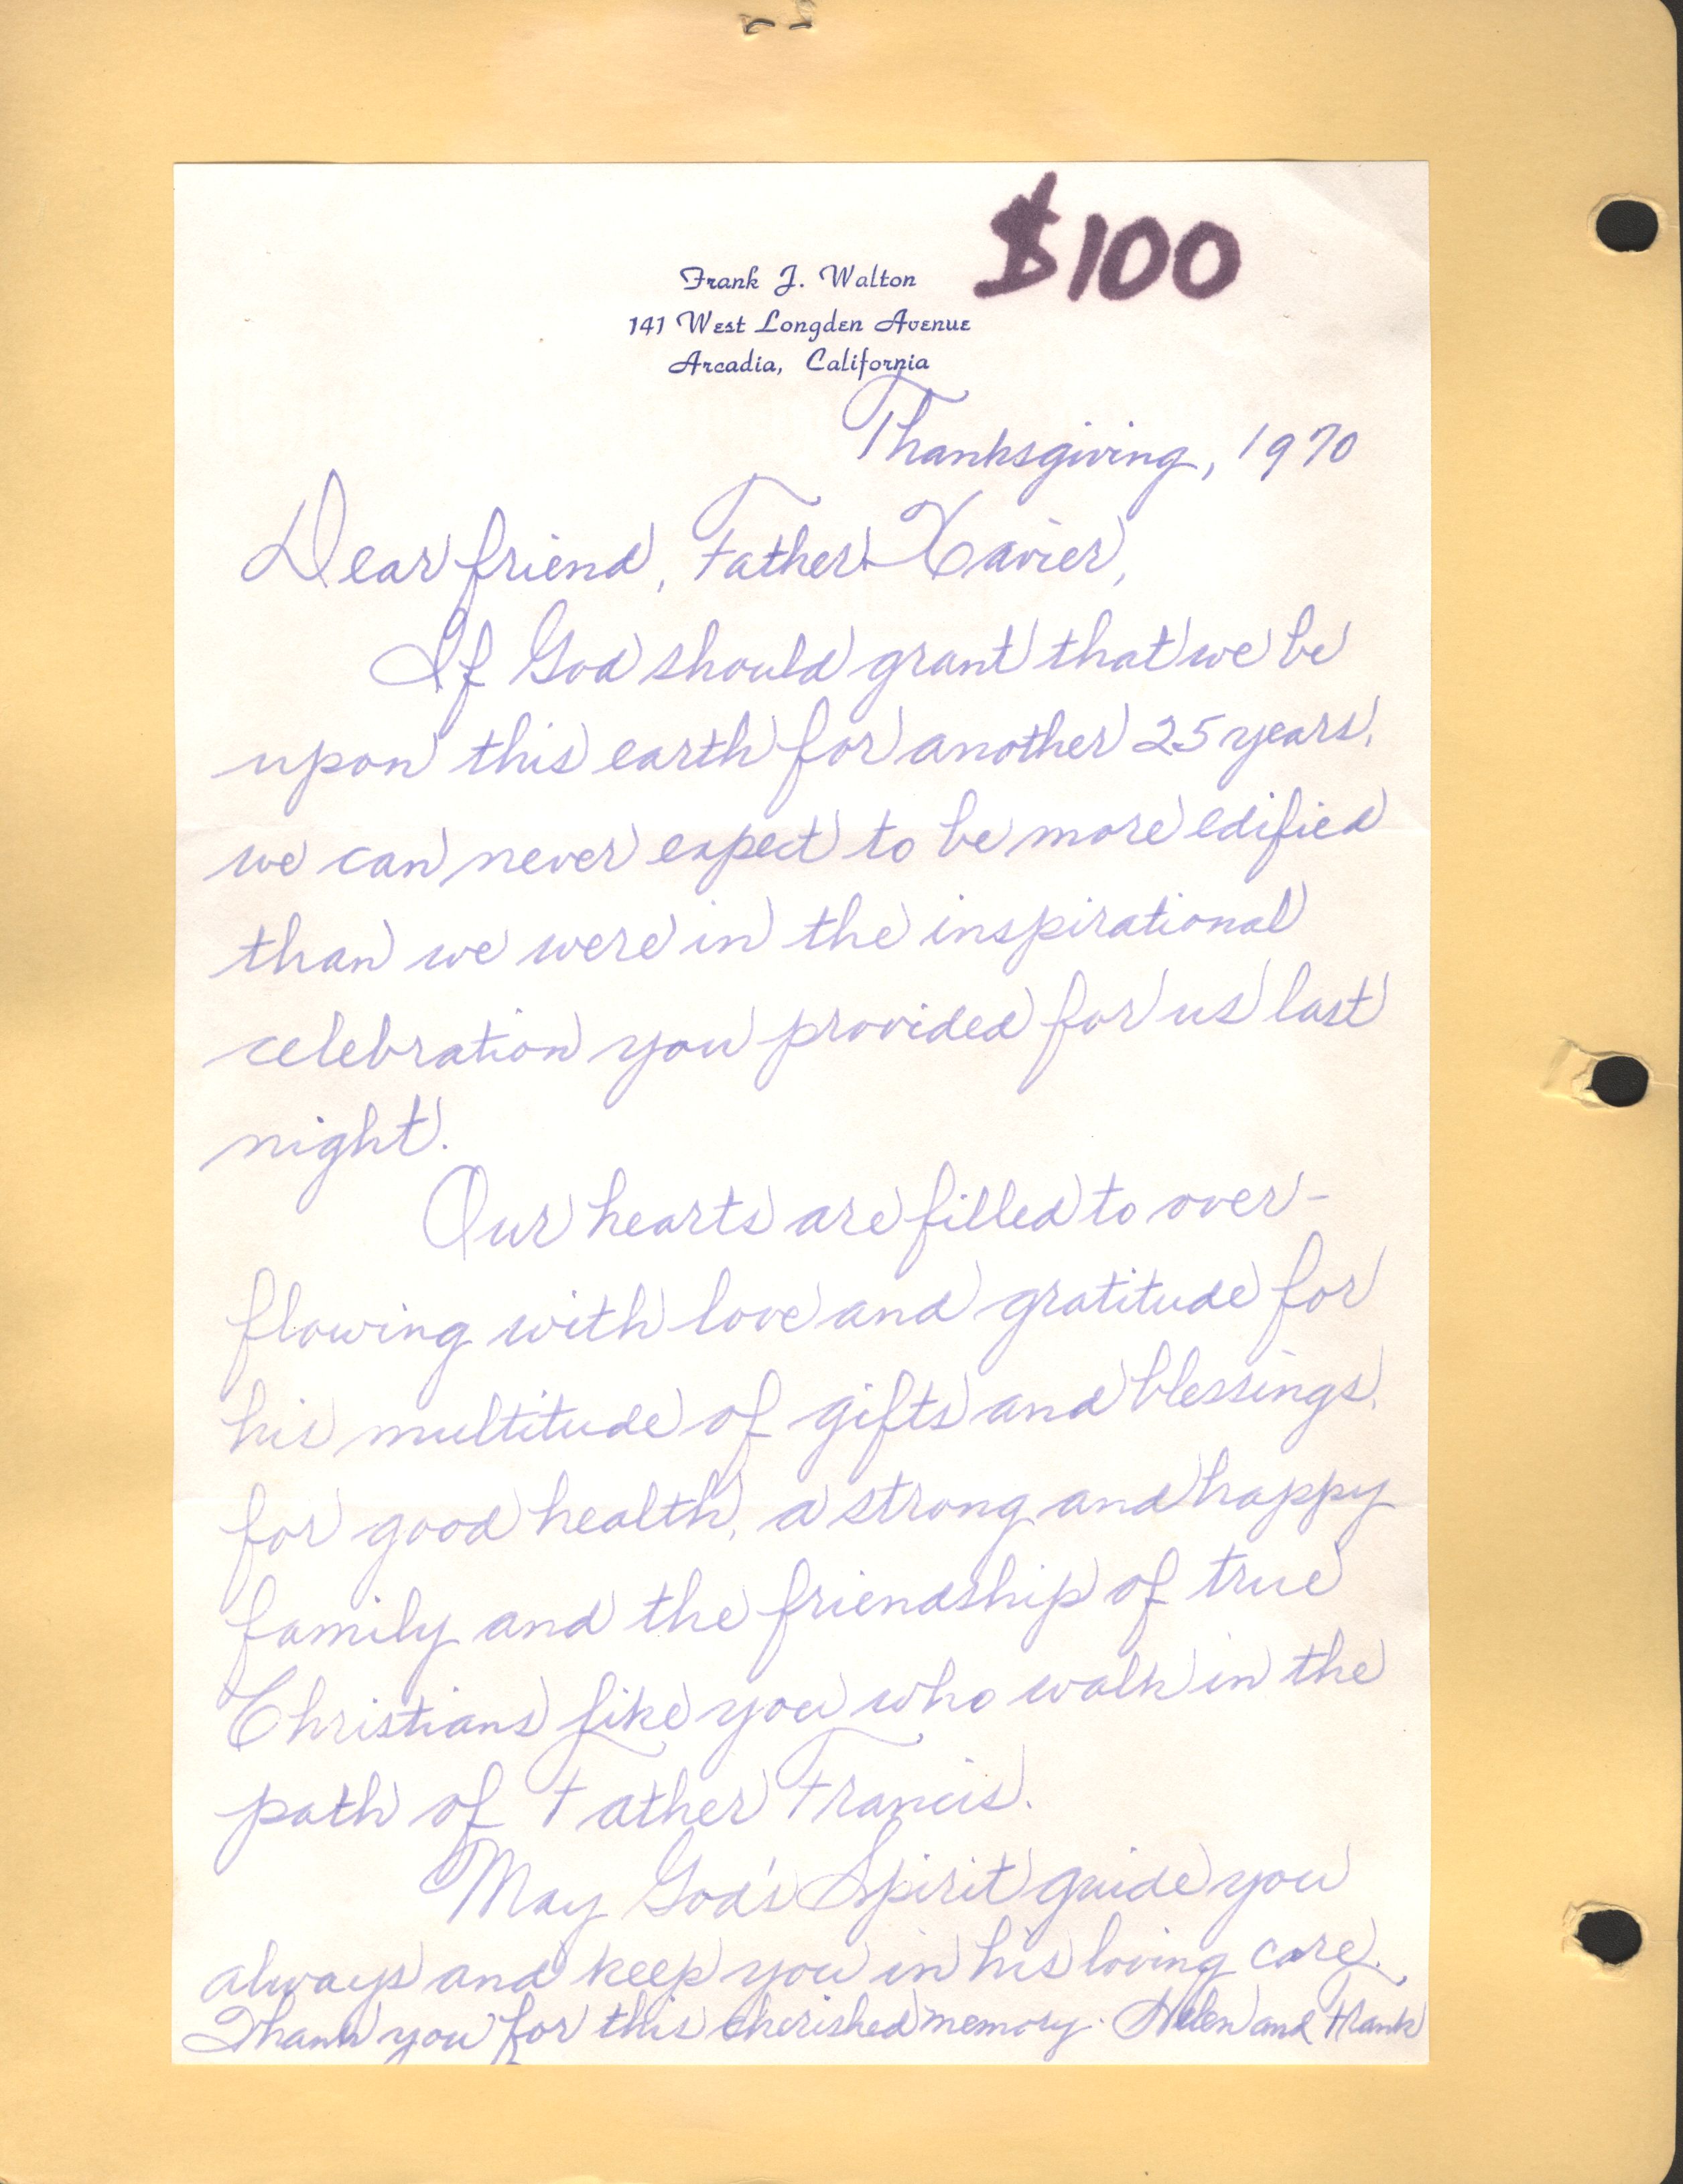 $100
Frank J. Walton
141 West Longden Avenue
Arcadia, California
Thanksgiving, 1970
Dear friend, Father Xavier,
If God should grant that we be
upon this earth for another 25 years,
we can never expect to be more edified
than we were in the inspirational
celebration you provided for us last
night.
Our hearts are filled to over-
flowing with love and gratitude for
his multitude of gifts and blessings,
for good health, a strong and happy
family and the friendship of true
Christians like you who walk in the
path of Father Francis.
May God's Spirit guide you
always and keep you in his loving care.
Thank you for this cherished memory. Helen and Frank